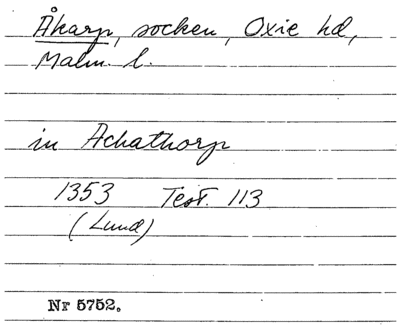 Åkarp, socken, Oxie hd,
Malm. l.
in Achathorp
1353 Test. 113
(Lund)
Nr 5752.